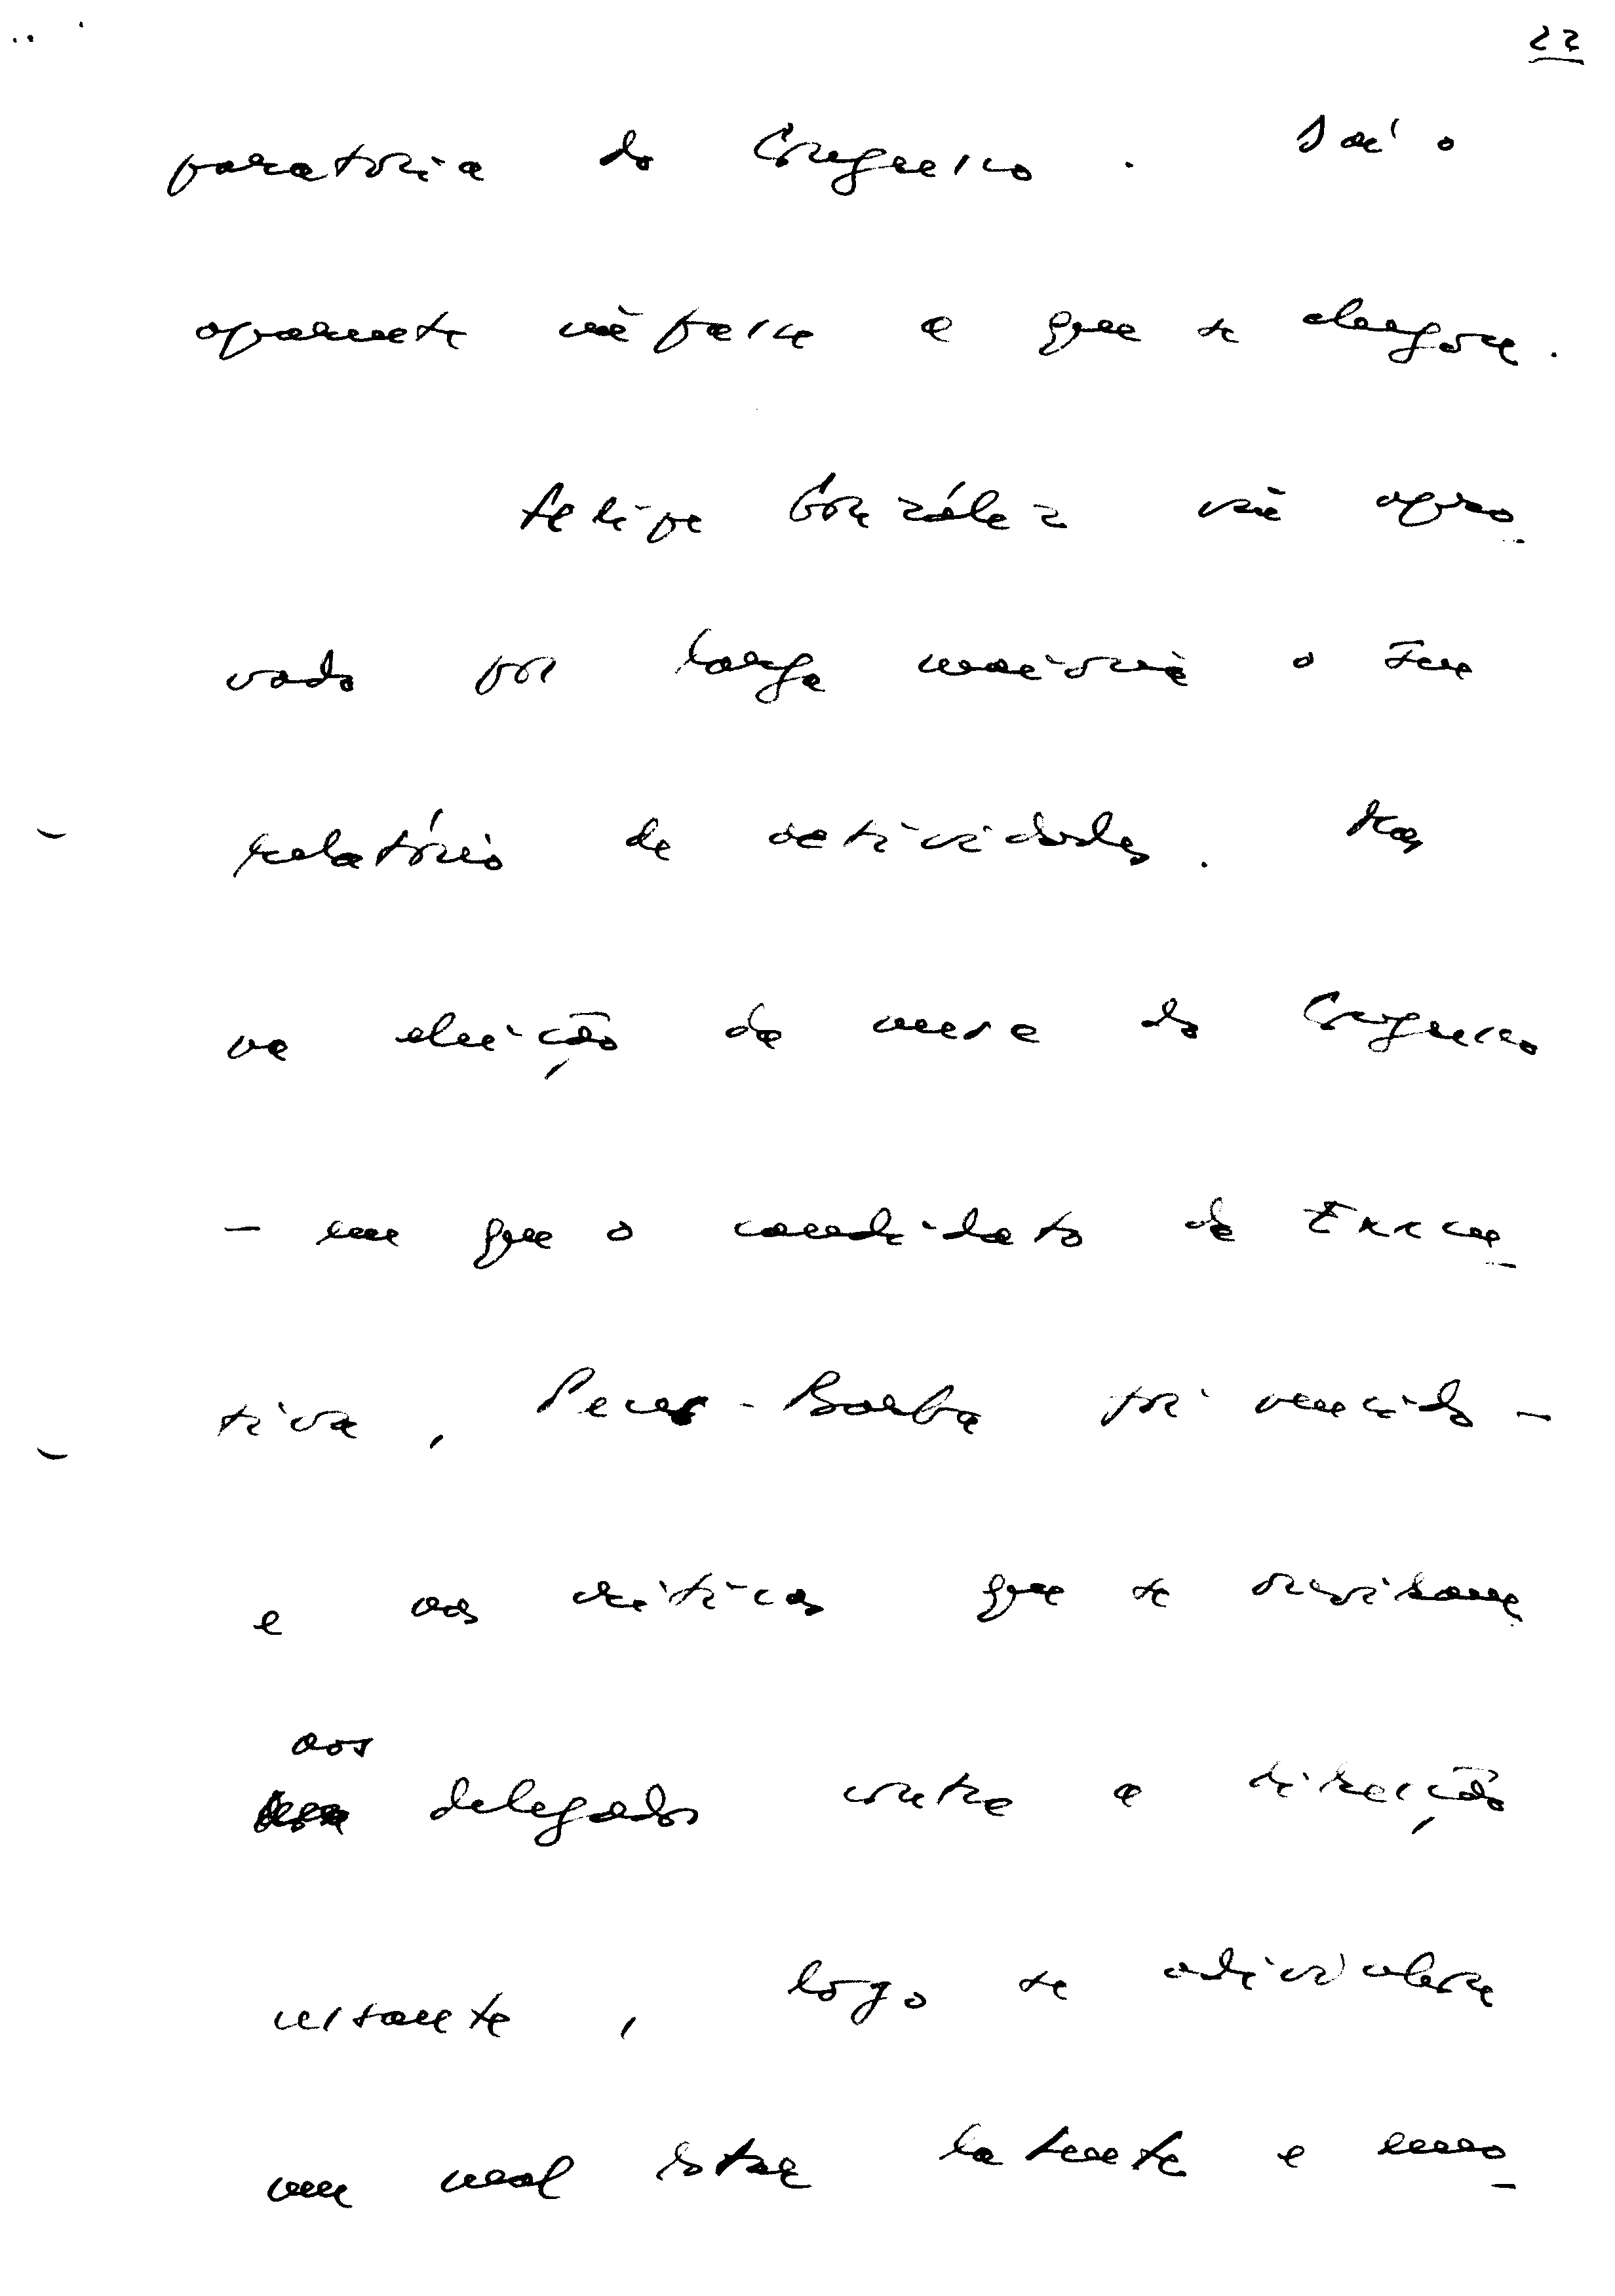 22
paratória do Congresso. Daí o
aparente impasse a que se chegou.
Felipe González viu apro-
vado por larga maioria o seu
relatório de actividades. Mas
na eleição da mesa do Congresso
- em que o candidato da Execu-
tiva, Peces-Barba foi vencido -
e nas críticas que se ouviram
aos
delegados contra a direcção
cessante, logo se adivinhou
um mal estar latente e